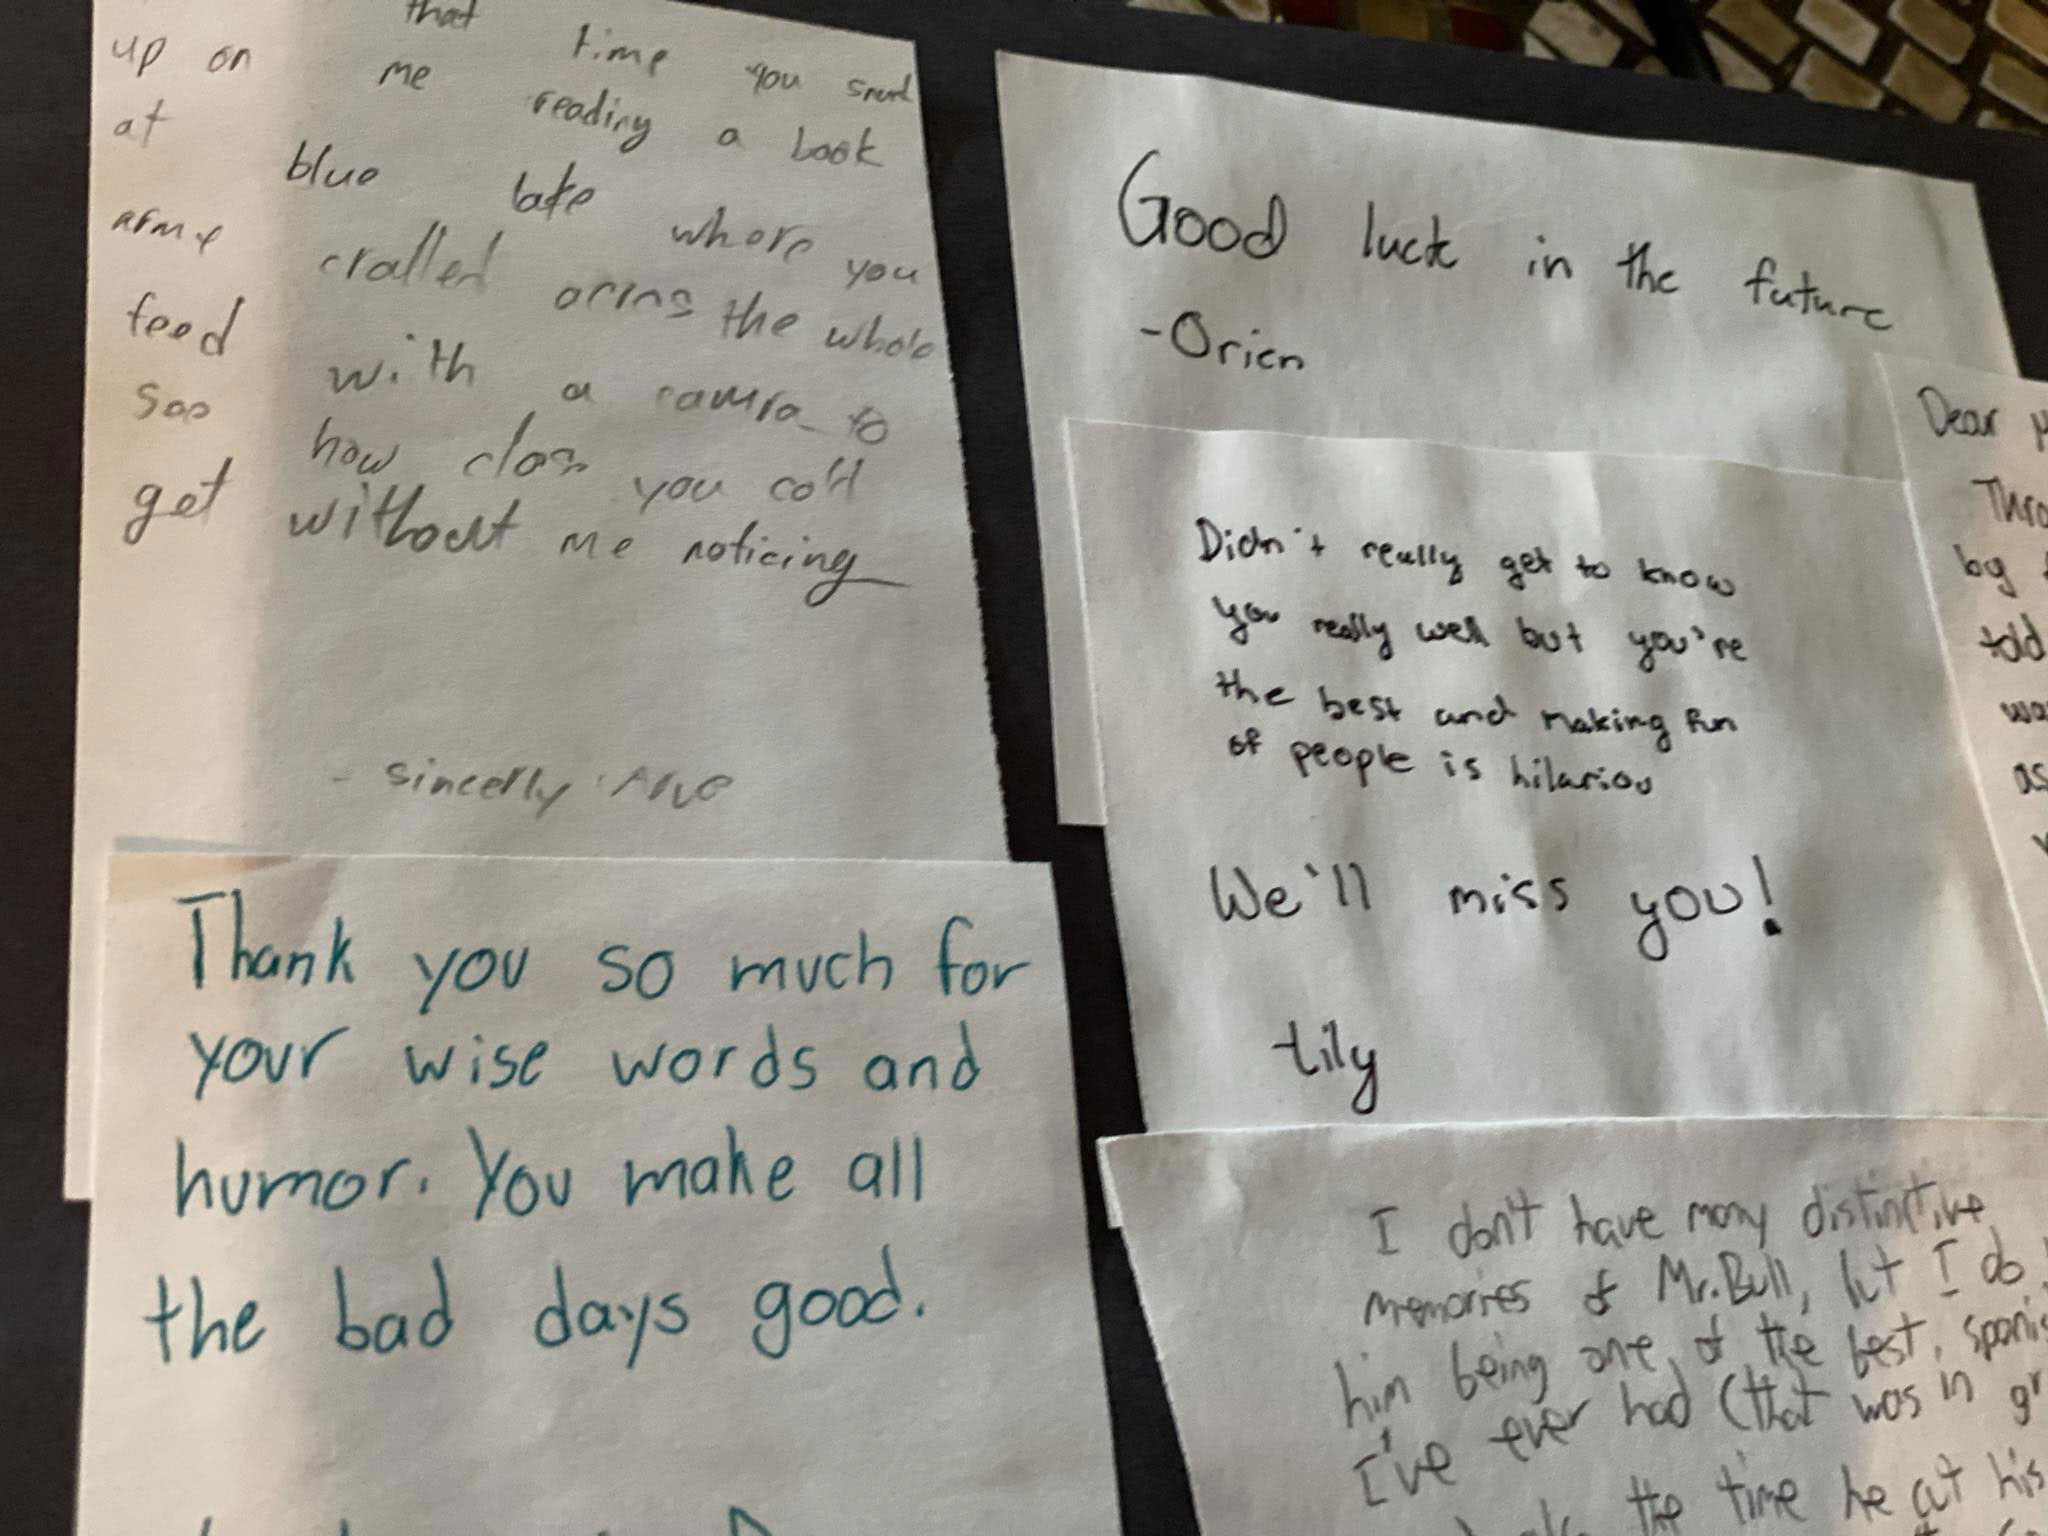 that time you snuk
up on me reading a book
at blue lake where you
army cralled acrins the whole
feed with a camra to
see how close you cold
get without me noticing
- sincerly
Thank you so much for
your wise words and
humor. You make all
the bad days good.
Good luck in the future
- Orien
Didn't really get to know
you really well but you're
the best and making fun
of people is hilariou
We'll miss you!
Lily
Dear
Thro
by
told
wa
as
I don't have many distinctive
memories of Mr. Bull, but I do
him being one of the best, spanis
I've ever had (that was in gr
the time he at his